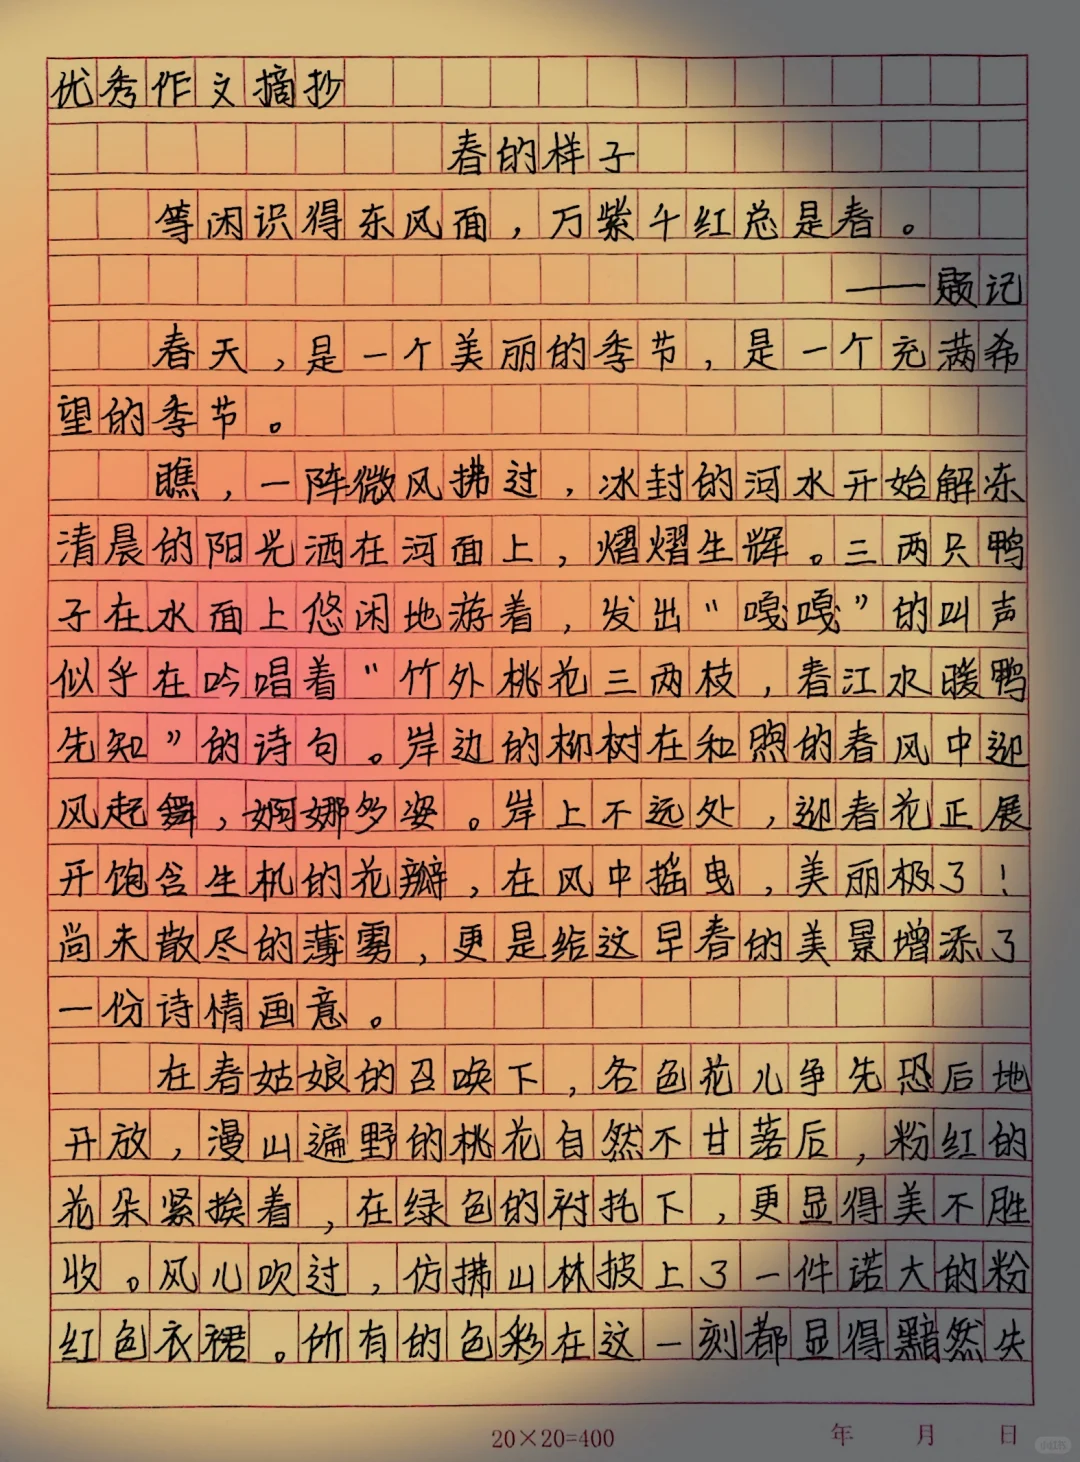 优秀作文摘抄
春的样子
等闲识得东风面，万紫千红总是春。
——题记
春天，是一个美丽的季节，是一个充满希
望的季节。
瞧，一阵微风拂过，冰封的河水开始解冻
清晨的阳光洒在河面上，熠熠生辉。三两只鸭
子在水面上悠闲地游着，发出“嘎嘎”的叫声
似乎在吟唱着“竹外桃花三两枝，春江水暖鸭
先知”的诗句。岸边的柳树在和煦的春风中迎
风起舞，婀娜多姿。岸上不远处，迎春花正展
开饱含生机的花瓣，在风中摇曳，美丽极了！
尚未散尽的薄雾，更是给这早春的美景增添了
一份诗情画意。
在春姑娘的召唤下，各色花儿争先恐后地
开放，漫山遍野的桃花自然不甘落后，粉红的
花朵紧挨着，在绿色的衬托下，更显得美不胜
收。风儿吹过，仿拂山林披上了一件诺大的粉
红色衣裙。所有的色彩在这一刻都显得黯然失
20×20=400 年 月 日